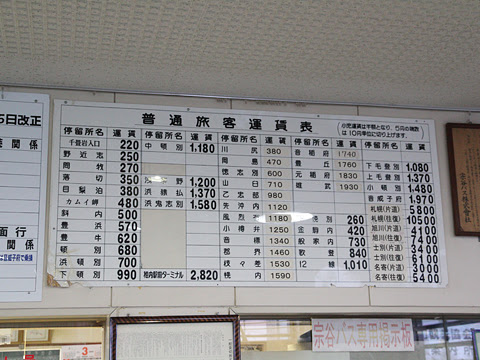 5日改正
関係
面行
関係
普通旅客運賃表
小児運賃は半額となり、5円の端数は10円単位に切り上げます。
停留所名 運賃 停留所名 運賃 停留所名 運賃 停留所名 運賃 停留所名 運賃
千畳岩入口 220
野近志 250
岡牧 270
落切 350
目梨泊 380
カムイ岬 480
斜内 500
豊浜 570
豊牛 620
頓別 680
浜頓別 770
下頓別 990
中頓別 1,180
野 1,200
浜猿払 1,370
浜鬼志別 1,580
稚内駅前ターミナル 2,820
川尻 380
岡島 470
徳志別 600
山臼 710
乙忠部 980
先沖内 1120
風烈 1180
小樽 1250
音標 1340
郡界 1460
1530
幌内 1590
音稲府 1740
豊丘 1760
元稲府 1830
雄武 1930
別 260
金駒内 420
般家内 730
歌登 840
12線 1,010
下毛登別 1,080
上毛登別 1,370
小頓別 1,480
音威子府 1,970
札幌(片道) 5800
札幌(往復) 10500
旭川(片道) 4100
旭川(往復) 7400
士別(片道) 3400
士別(往復) 6100
名寄(片道) 3000
名寄(往復) 5400
宗谷バス専用掲示板